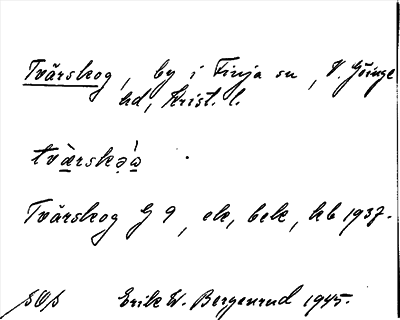 Tvärskog, by i Finja sn, V. Göinge
hd, Krist. l.
tvä̀rskə̣á̤.
Tvärskog G 9, ek, bek, hb 1937.
Erik W. Bergenrud 1945.